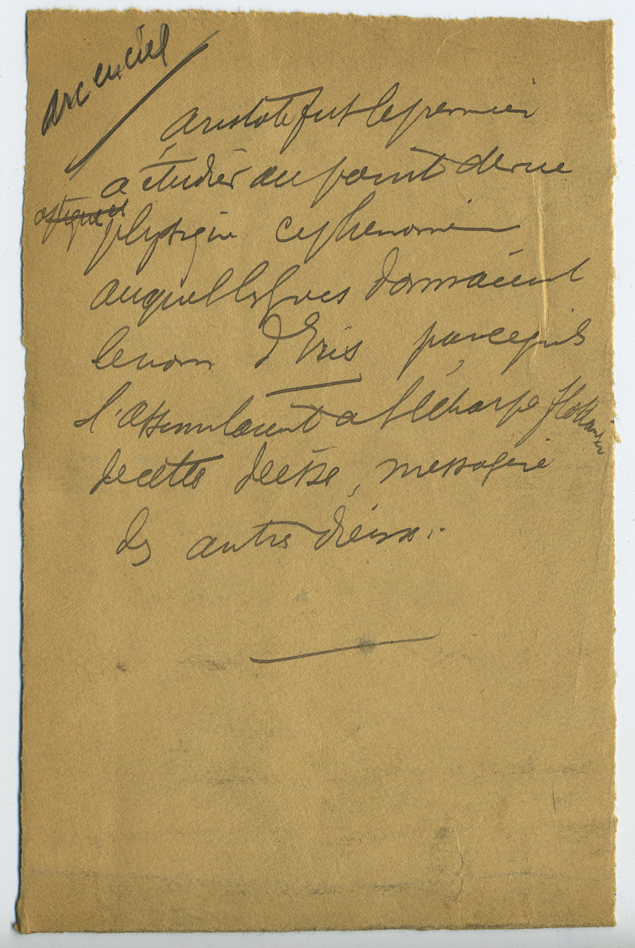 arc en ciel
Aristote fut le premier
à étudier au point de vue
physique ce phenomène
auquel les Grecs donnaient
le nom d'Iris parcequ'ils
l'assimilaient à l'écharpe flottante
de cette déesse, messagère
des autres dieux.